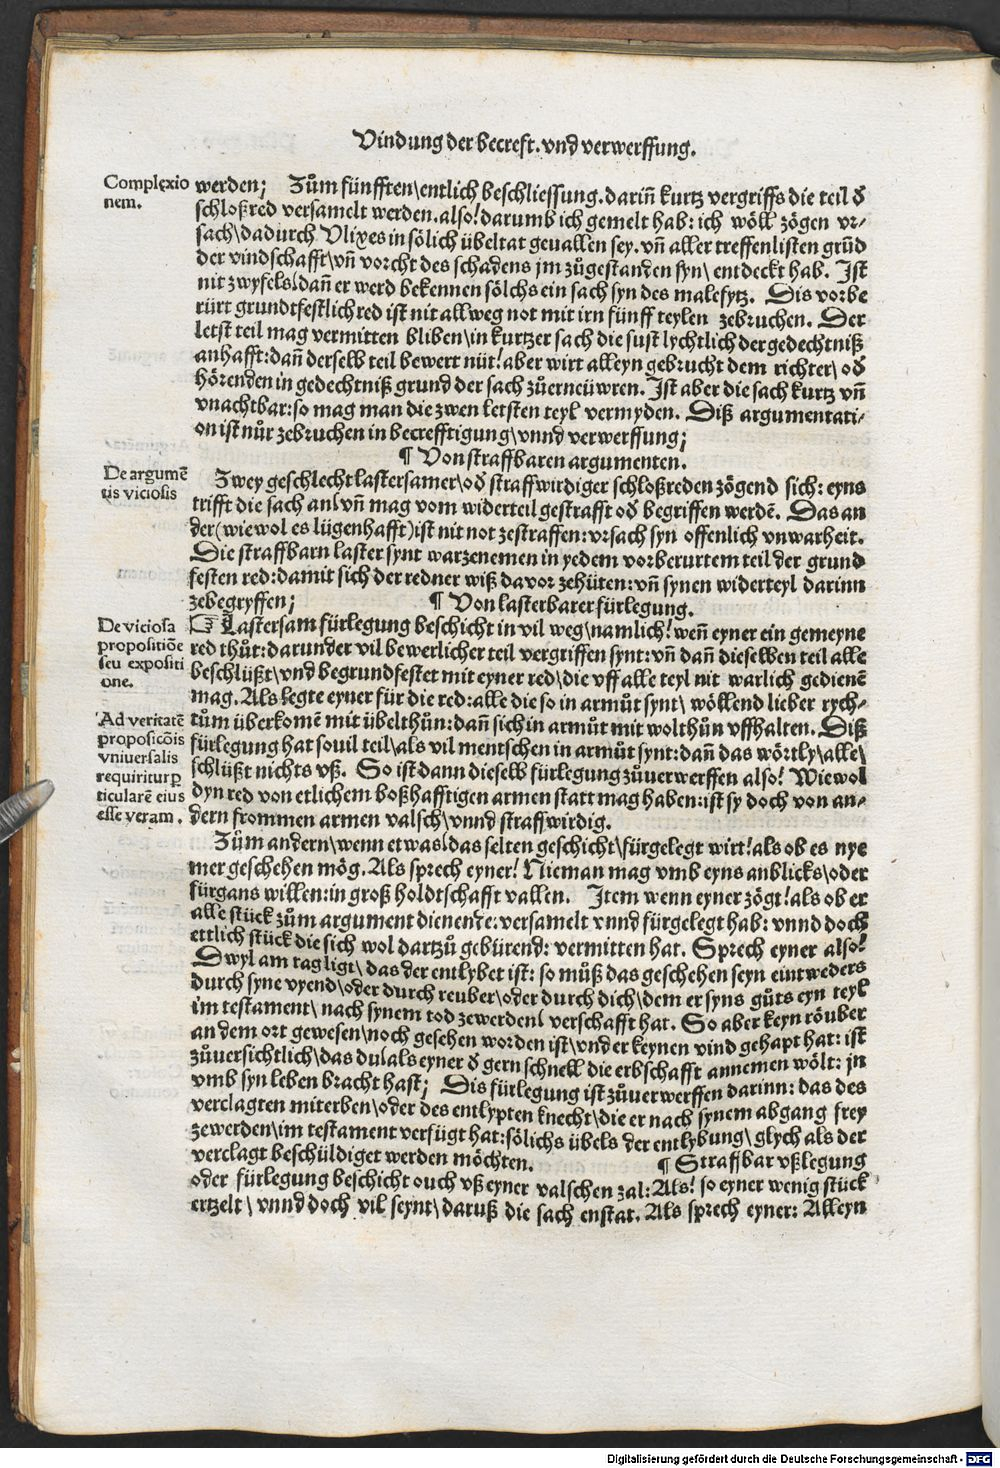 Vindung der becreft. vnd verwerffung.
Complexio
nem.
werden; Zům fünfften\entlich beschliessung. dariñ kurtz vergriffs die teil ð
schloßred versamelt werden. also! darumb ich gemelt hab: ich wöll zögen vr⸗
sach\dadurch Vlixes in sölich übeltat geuallen sey. vñ aller treffenlisten grũd
der vindschafft\vñ vorcht des schadens jm zůgestanden syn\ entdeckt hab. Ist
nit zwyfels\dañ er werd bekennen sölchs ein sach syn des malefytz. Dis vorbe
rürt grundtfestlich red ist nit allweg not mit irn fünff teylen zebruchen. Der
letst teil mag vermitten bliben\in kurtzer sach die sust lychtlich der gedechtniß
anhafft: dañ derselb teil bewert nüt! aber wirt alleyn gebrucht dem richter\ oð
hörenden in gedechtniß grund der sach zůerneüwren. Ist aber die sach kurtz vñ
vnachtbar: so mag man die zwen letsten teyl vermyden. Diß argumentati⸗
on ist nůr zebruchen in becrefftigung\vnnd verwerffung;
¶ Von straffbaren argumenten.
De argumē
tis viciosis
Zwey geschlecht lastersamer\oð straffwirdiger schloßreden zögend sich: eyns
trifft die sach an\vñ mag vom widerteil gestrafft oð begriffen werdē. Das an
der(wiewol es lügenhafft)ist nit not zestraffen: vrsach syn offenlich vnwarheit.
Die straffbarn laster synt warzenemen in yedem vorberurtem teil der grund
festen red: damit sich der redner wiß davor zehüten: vñ synen widerteyl darinn
zebegryffen; ¶ Von lasterbarer fürlegung.
De viciosa
propositiōe
seu expositi
one.
☞ Lastersam fürlegung beschicht in vil weg\namlich! weñ eyner ein gemeyne
red thůt: darunder vil bewerlicher teil vergriffen synt: vñ dañ dieselben teil alle
beschlüßt\vnd begrundfestet mit eyner red\die vff alle teyl nit warlich gedienē
mag. Als legte eyner für die red: alle die so in armůt synt\ wöllend lieber rych⸗
tům überkomē mit übelthůn: dañ sich in armůt mit wolthůn vffhalten. Diß
Ad veritatē
proposicōis
vniuersalis
requiritur ꝑ
ticularē eius
esse veram.
fürlegung hat souil teil\als vil mentschen in armůt synt: dañ das wörtly\alle\
schlüßt nichts vß. So ist dann dieselb fürlegung zůuerwerffen also! Wiewol
dyn red von etlichem boßhafftigen armen statt mag haben: ist sy doch von an⸗
dern frommen armen valsch\vnnd straffwirdig.
Zům andern\wenn etwas\das selten geschicht\fürgelegt wirt! als ob es nye
mer geschehen mög. Als sprech eyner! Nieman mag vmb eyns anblicks\oder
fürgans willen: in groß holdtschafft vallen. Item wenn eyner zögt! als ob er
alle stück zům argument dienende: versamelt vnnd fürgelegt hab: vnnd doch
ettlich stück die sich wol dartzů gebürend: vermitten hat. Sprech eyner also!
Dwyl am tag ligt\ das der entlybet ist: so můß das geschehen seyn eintweders
durch syne vyend\oder durch reuber\oder durch dich\dem er syns gůts eyn teyl
im testament\ nach synem tod zewerden\ verschafft hat. So aber keyn röuber
an dem ort gewesen\noch gesehen worden ist\vnd er keynen vind gehapt hat: ist
zůuersichtlich\das du\als eyner ð gern schnell die erbschafft annemen wölt: jn
vmb syn leben bracht hast; Dis fürlegung ist zůuerwerffen darinn: das des
verclagten miterben\oder des entlypten knecht\die er nach synem abgang frey
zewerden\im testament verfügt hat: sölichs übels der entlybung\ glych als der
verclagt beschüldiget werden möchten. ¶ Straffbar vßlegung
oder fürlegung beschicht ouch vß eyner valschen zal: Als! so eyner wenig stück
ertzelt\ vnnd doch vil seynt\ daruß die sach enstat. Als sprech eyner: Alleyn
Digitalisierung gefördert durch die Deutsche Forschungsgemeinschaft - DFG